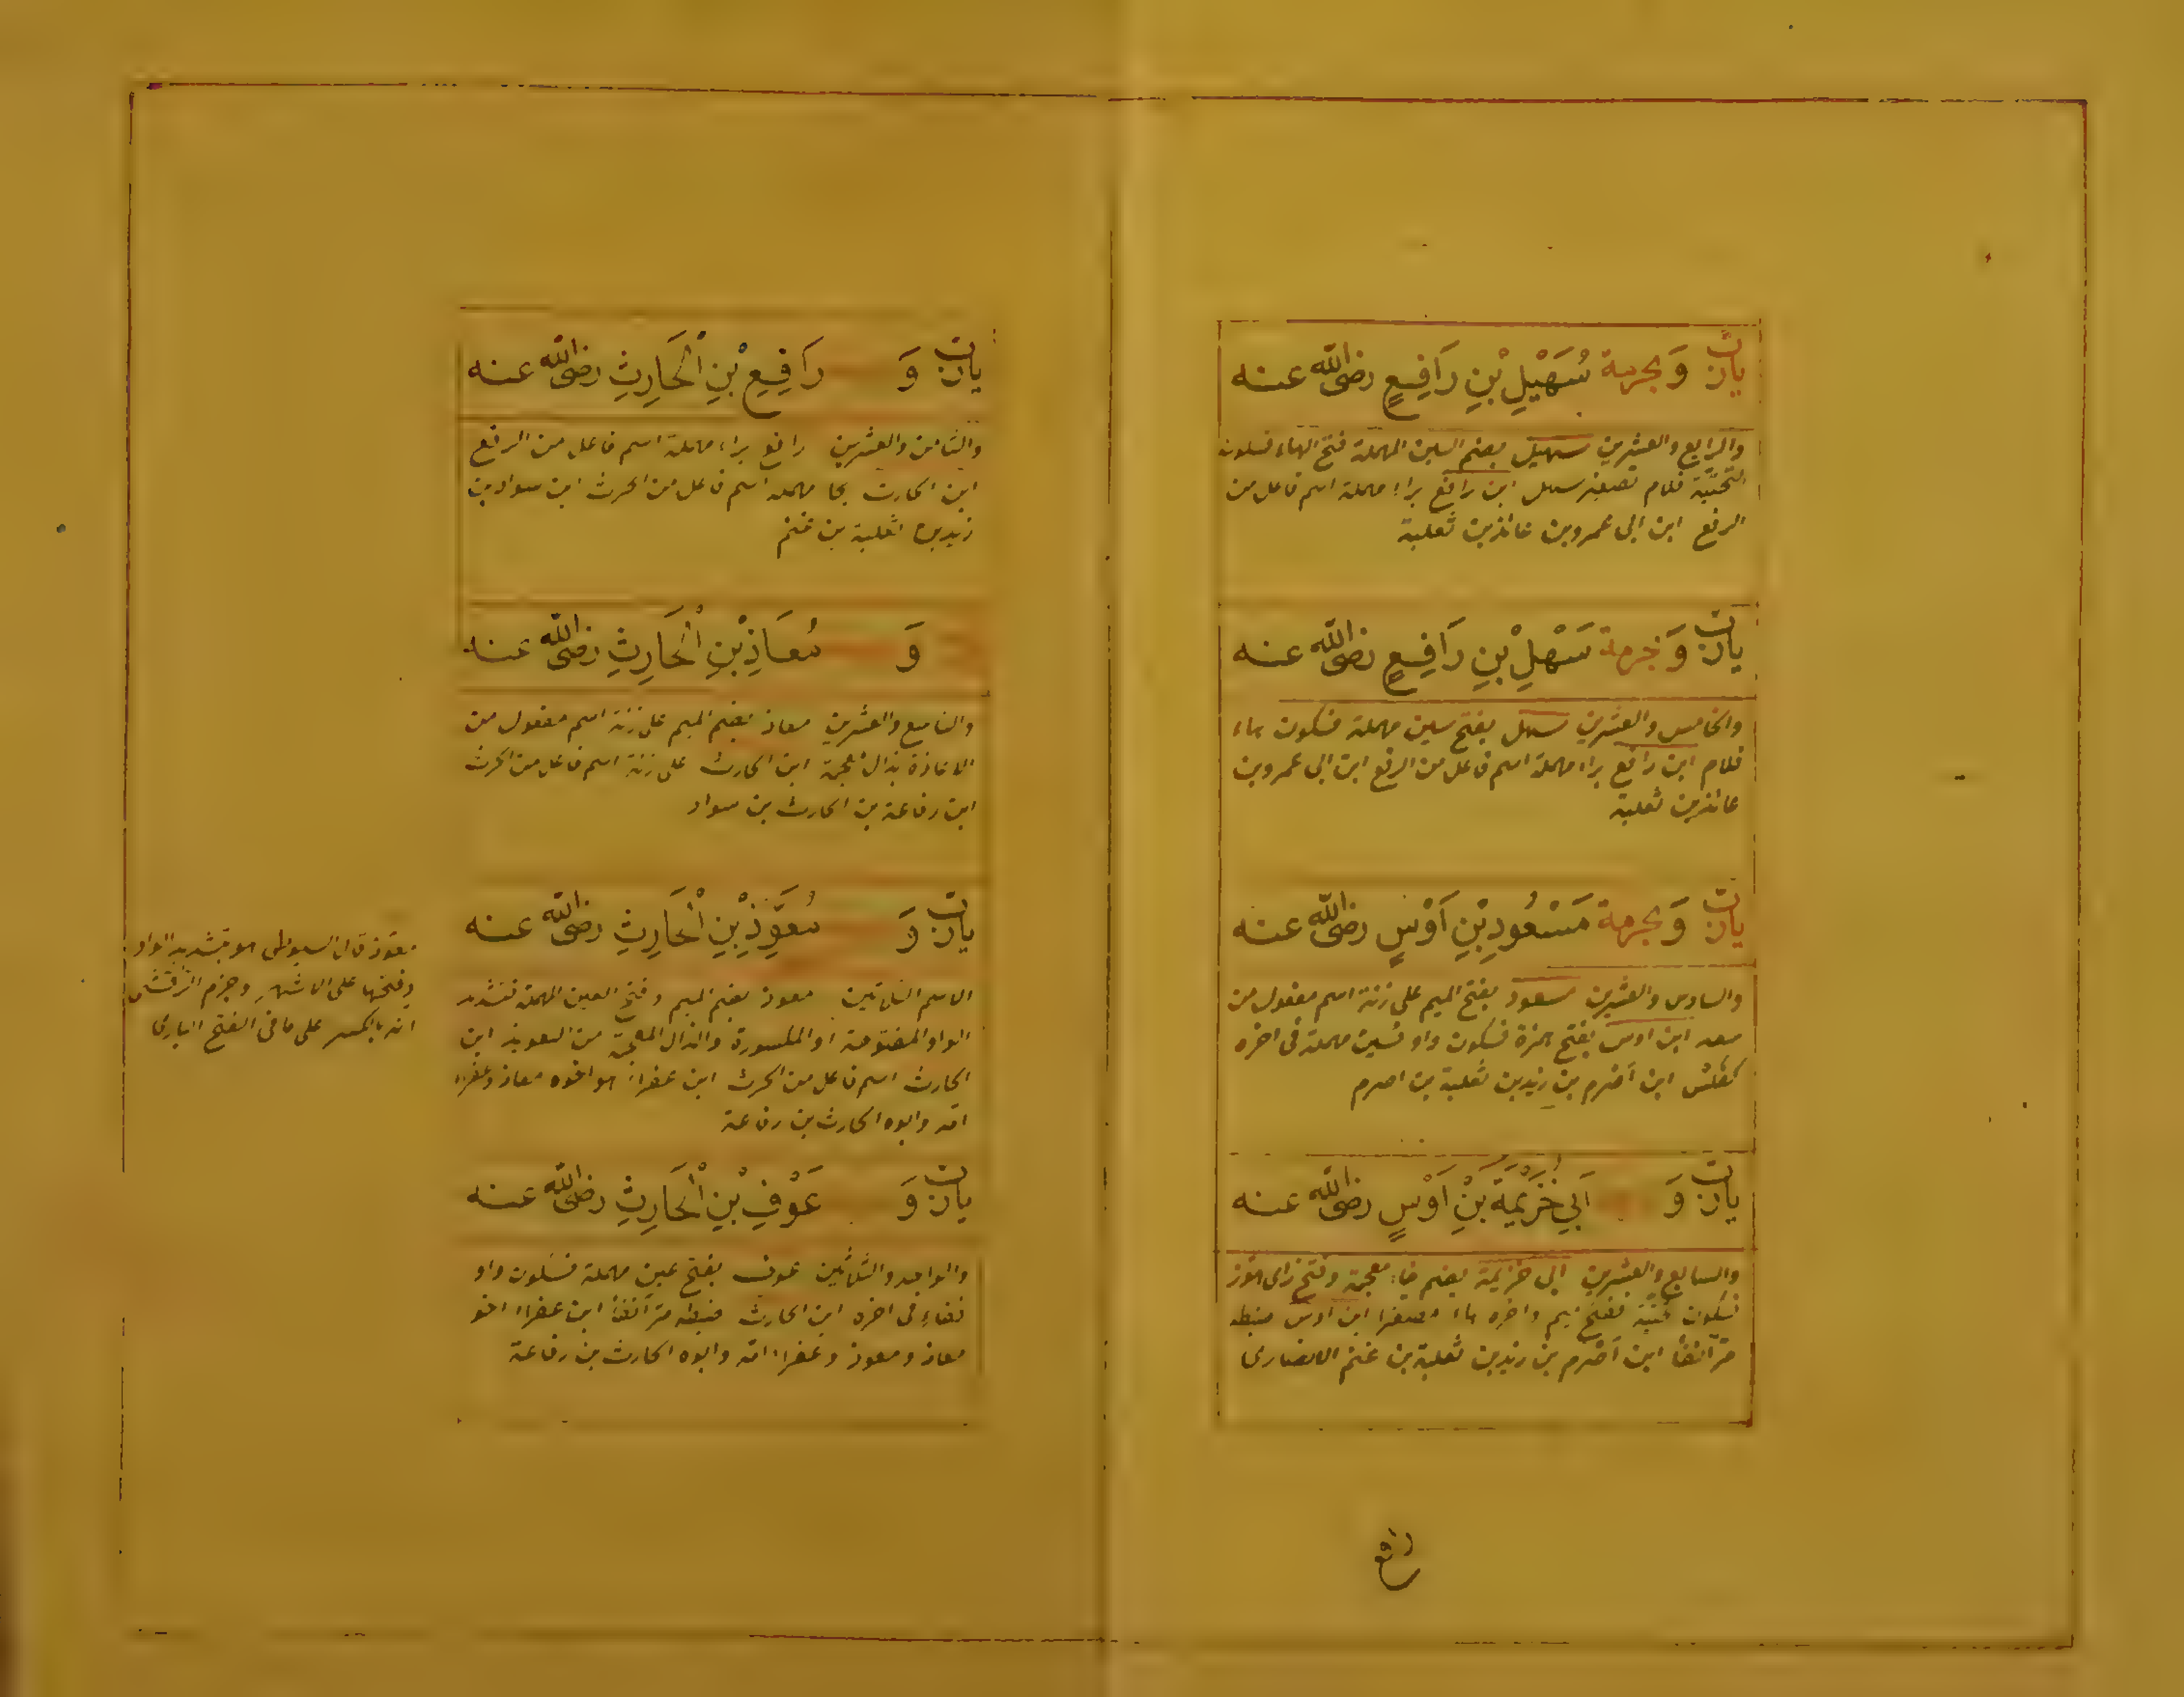 يا رب وبحرمة سُهَيْلِ بْنِ رَافِعٍ رضى الله عنه
والرابع والعشرين سهيل بضم السين المهملة فتح الهاء فسكون
التحتية فلام تصغير سهل ابن رافع براء مهملة اسم فاعل من
الرفع ابن ابى عمرو بن عائذ بن ثعلبة
يا رب وبحرمة سَهْلِ بْنِ رَافِعٍ رضى الله عنه
والخامس والعشرين سهل بفتح سين مهملة فسكون هاء
فلام ابن رافع براء مهملة اسم فاعل من الرفع ابن ابى عمرو بن
عائذ بن ثعلبة
يا رب وبحرمة مَسْعُودِ بْنِ اَوْسٍ رضى الله عنه
والسادس والعشرين مسعود بفتح الميم على زنة اسم مفعول من
سعد ابن اوس بفتح همزة فسكون واو فسين مهملة فى اخره
كفلس ابن اصرم بن زيد بن ثعلبة بن اصرم
يا رب وَ اَبِي خُزَيْمَةَ بْنِ اَوْسٍ رضى الله عنه
والسابع والعشرين ابى خزيمة بضم خاء معجمة وفتح زاى هوز
فسكون تحتية ففتح ميم واخره هاء مصغرا ابن اوس ضبطه
مر آنفا ابن اصرم بن زيد بن ثعلبة بن غنم الانصارى
رافع
يا رب وَ رَافِعِ بْنِ الْحَارِثِ رضى الله عنه
والثامن والعشرين رافع براء مهملة اسم فاعل من الرفع
ابن الحارث بحا مهملة اسم فاعل من الحرث ابن سواد بن
زيد بن ثعلبة بن غنم
وَ مُعَاذِ بْنِ الْحَارِثِ رضى الله عنه
والتاسع والعشرين معاذ بضم الميم على زنة اسم مفعول من
الاعاذة بذال معجمة ابن الحارث على زنة اسم فاعل من الحرث
ابن رفاعة بن الحارث بن سواد
يا رب وَ مُعَوَّذِ بْنِ الْحَارِثِ رضى الله عنه
الاسم الثلاثين معوذ بضم الميم وفتح العين المهملة فتشديد
الواو المفتوحة او المكسورة والذال المعجمة من التعويذ ابن
الحارث اسم فاعل من الحرث ابن عفراء هو اخوه معاذ وعفراء
امه وابوه الحارث بن رفاعة
يا رب وَ عَوْفِ بْنِ الْحَارِثِ رضى الله عنه
والواحد والثلاثين عوف بفتح عين مهملة فسكون واو
ففاء فى اخره ابن الحارث ضبطه مر آنفا ابن عفراء اخو
معاذ ومعوذ وعفراء امه وابوه الحارث بن رفاعة
معوذ قال السيوطى هو بتشديد الواو
وفتحها على الاشهر وجزم الوقشى
انه بالكسر على ما فى الفتح البارى